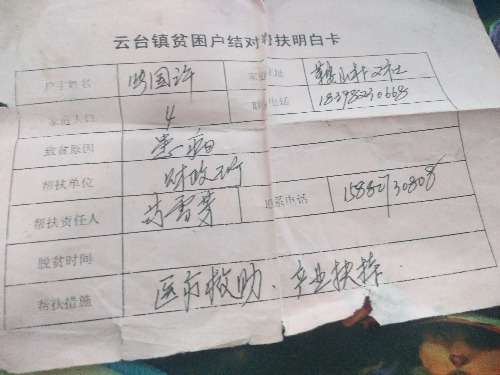 云台镇贫困户结对帮扶明白卡
户主姓名 国许 家庭住址 社
家庭人口 4 联系电话 18398230668
致贫原因 患病
帮扶单位 财政所
帮扶责任人 联系电话 15882730808
脱贫时间
帮扶措施 医疗救助、产业扶持